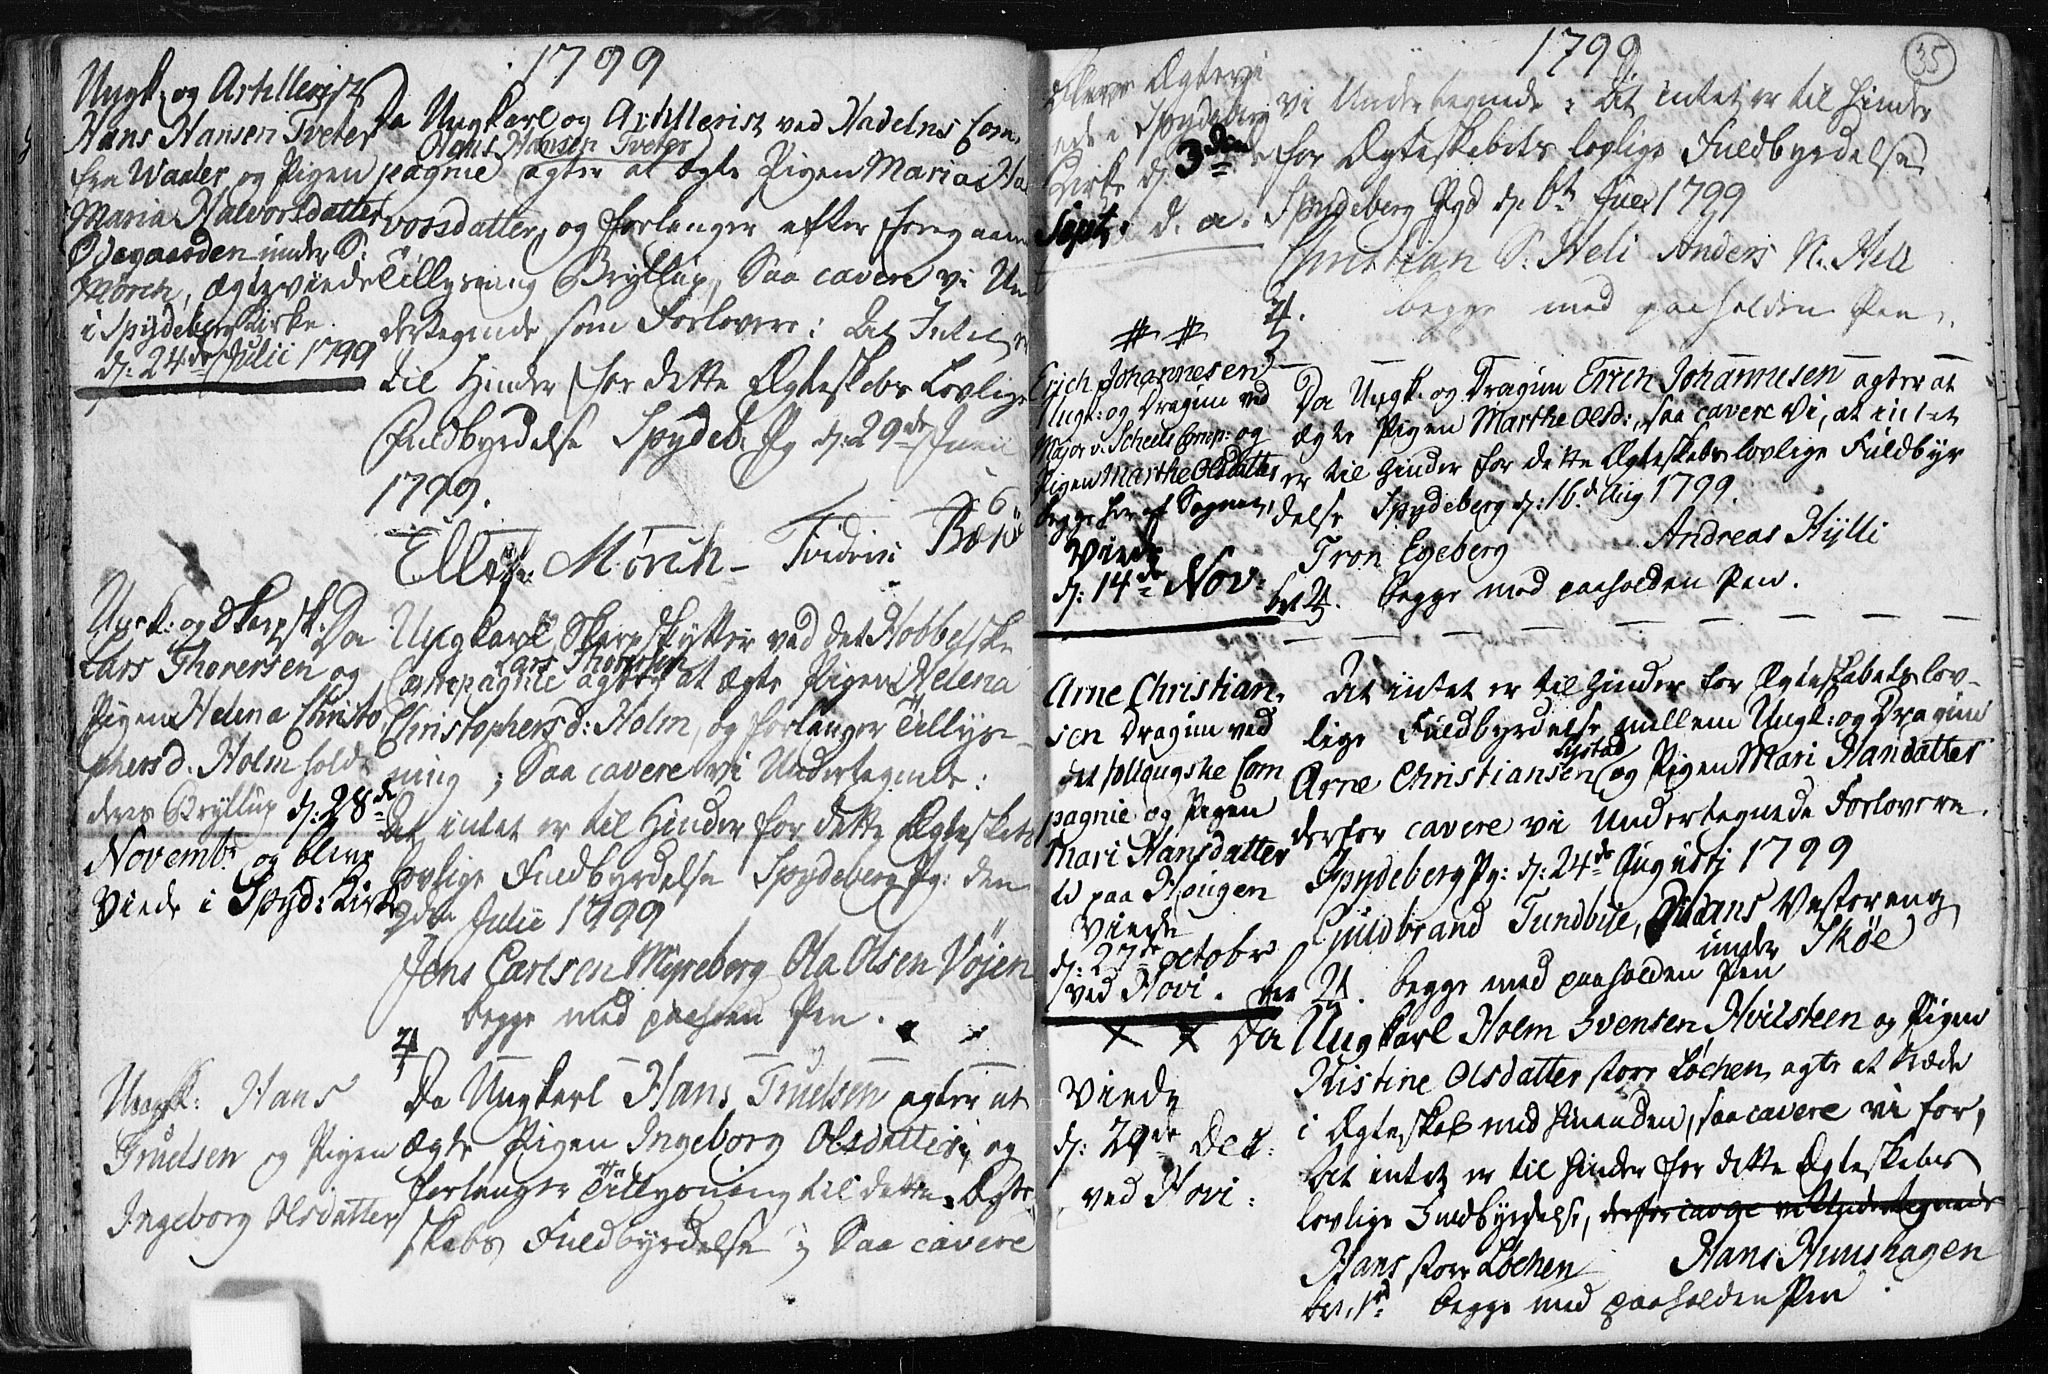 1799
Ungk: og Artillerist
Hans Hansen Tveter
fra Waaler og Pigen
Maria Halvorsdatter
Ødegaarden under S:
Mörch, ægteviede
i Spydeberg Kirke
d: 24de Julii 1799
Da Ungkarl og Artillerist ved Hadelns Com-
Hans Hansen Tveter
pagnie agter at ægte Pigen Maria Hal
vorsdatter, og forlanger efter foregaaende
Tillysning Bryllup, Saa cavere vi Un
dertegnede som Forlovere: det Intet er
til Hinder for dette Ægteskabs Lovlige
Fuldbyrdelse Spydeb. Pg d: 29de Junii
1799.
Mörch
Ungk: og Skarpsk:
Lars Thorersen og
Pigen Helena Christo
phersd. Holm holdt
deres Bryllup d: 28de
Novembr og blev
Viede i Spyd: Kirke
Da Ungkarl Skarpskytter ved det Hobbelske
Lars Thorersen
Compagnie agter at ægte Pigen Helena
Christophersd: Holm, og forlanger Tillys-
ning; Saa cavere vi Undertegnede:
At intet er til Hinder for dette Ægteskabs
lovlige Fuldbyrdelse Spydeberg Pg: den
Julii 1799
Jens Carlsen Myreberg Ola Olsen Vöjen
begge med paaholden Pen.
Ungk: Hans
Truelsen og Pigen
Ingeborg Olsdatter
Da Ungkarl Hans Truelsen agter at
ægte Pigen Ingeborg Olsdatter, og
forlanger Tillysning til dette Ægte
skabs Fuldbyrdelse; Saa cavere
1799
35
bleve Ægtevi
ede i Spydeberg
Kirke d. 3den
Sept. d. a.
vi Undertegnede: At intet er til Hinder
for Ægteskabets lovlige Fuldbyrdelse
Spydeberg Pgd d. 6te 1799
Christian S: Heli Anders N: Heli
begge med paaholden Pen.
Erich Johannesen
Ungk: og Dragun ved
Major v. Scheels Comp: og
Pigen Marthe Olsdatter
begge her af Sognet,
Viede
d: 14de Nov:
Da Ungk: og Dragun Erich Johannesen agter at
ægte Pigen Marthe Olsd:, saa cavere vi, at intet
er til Hinder for dette Ægteskabs lovlige Fuldbyr
delse Spydeberg d: 16de Aug 1799.
Tron Egeberg Andreas Hylli
begge med paaholden Pen.
Arne Christian-
sen Dragun ved
det Com
pagnie og Pigen
Mari Hansdatter
paa Hougen
Viede
d: 27de Octobr
ved Hovi.
At intet er til Hinder for Ægteskabets lov-
lige Fuldbyrdelse mellem Ungk: og Dragun
Arne Christiansen og Pigen Mari Hansdatter
derfor cavere vi Undertegnede Forlovere.
Spydeberg Pg: d: 24de Augustj 1799
Guldbrand Tundbye, Hans Vestereng
under Skøe
begge med paaholden Pen
Viede
d: 29de Dec:
ved Hovi:
Da Ungkarl Holm Svensen Hvilsteen og Pigen
Kristine Olsdatter store Løchen agte at træde
i Ægteskab med hinanden, saa cavere vi for,
At intet er til Hinder for dette Ægteskabs
lovlige Fuldbyrdelse, derfor cavere vi Undertegnede
Hans store Løchen Hans Huushagen
begge med paaholden Pen